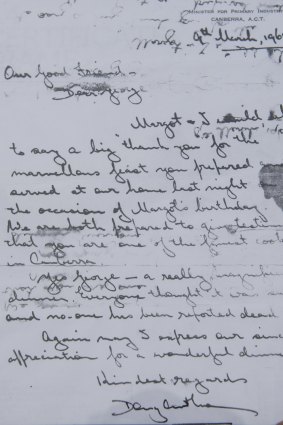 MINISTER FOR PRIMARY INDUST
CANBERRA, A.C.T.
9th March, 196
Our Good Friend -
Dear George
Margot & I would
to say a big "thank you" for the
marvellous feast you prepared
served at our home last night
the occasion of Margot's birthday.
We are both prepared to guarantee
that you are one of the finest cook
in Canberra
Yes George - a really magnificent
dinner. Everyone thought it was
and no-one has been reported dead
Again may I express our sinc
appreciation for a wonderful dinne
Kindest regards